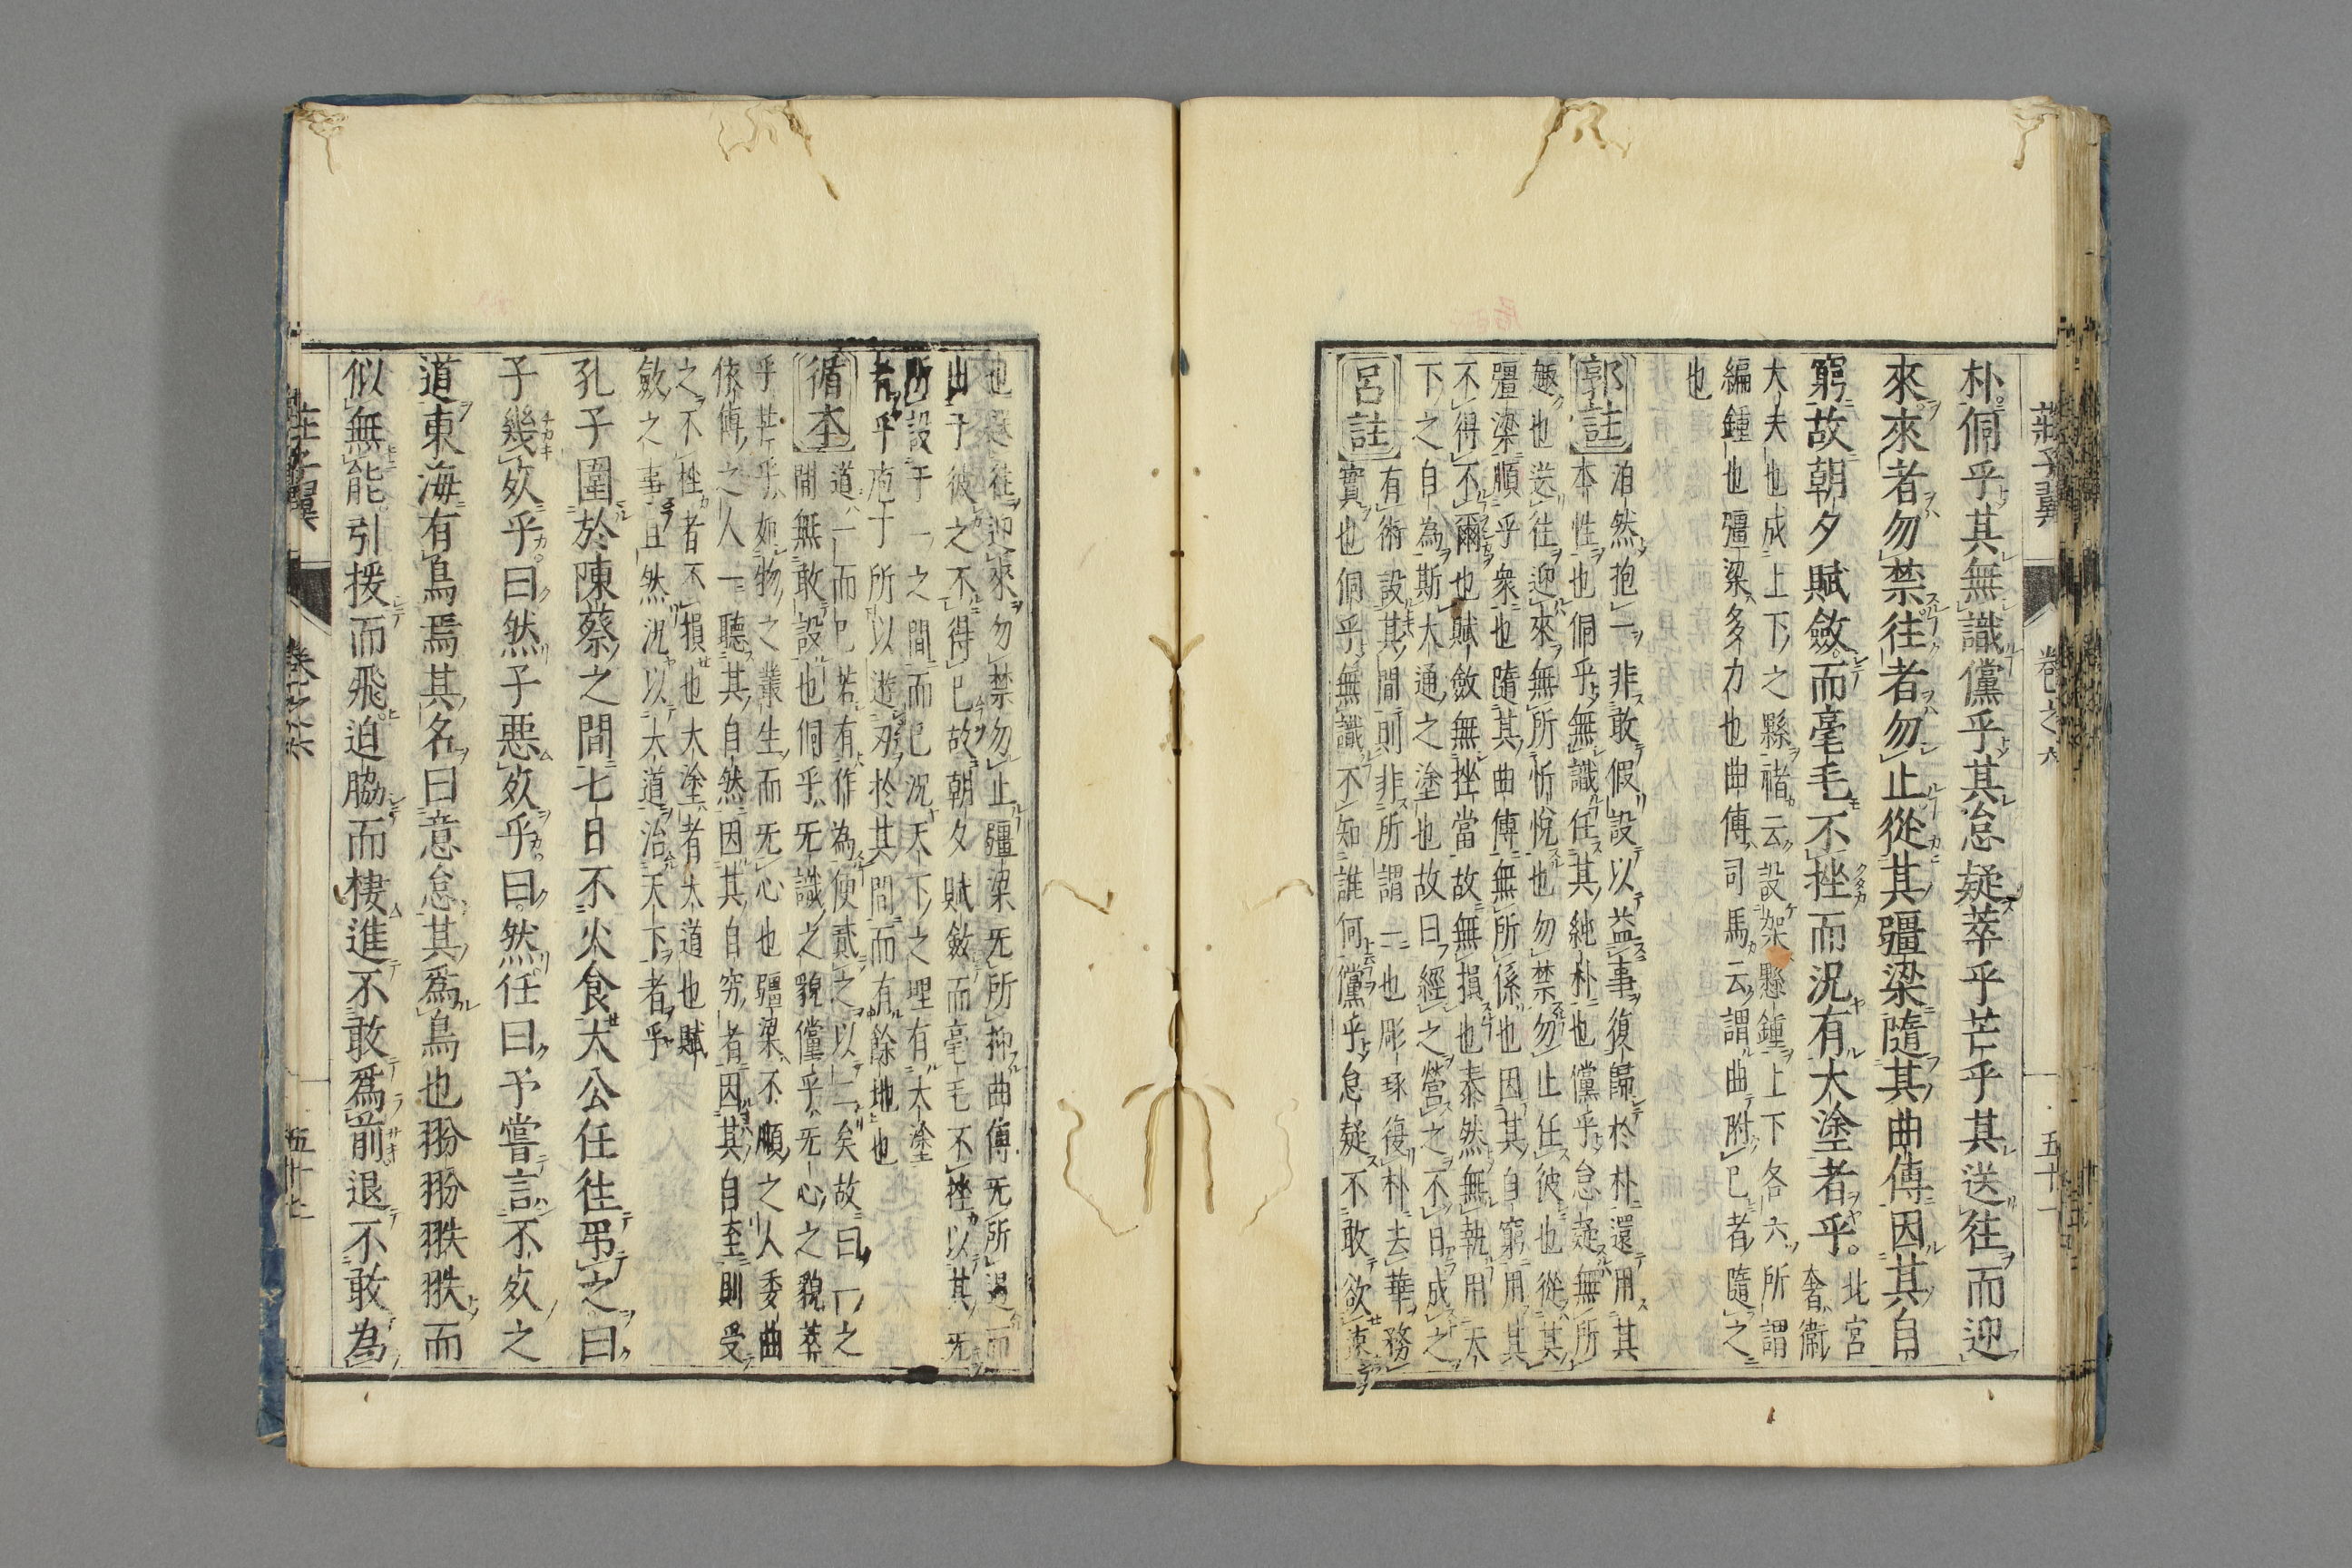 莊子翼 卷之六 五十一
朴侗乎其無識儻乎其怠疑萃乎芒乎其送往而迎
來來者勿禁往者勿止從其彊梁隨其曲傅因其自
窮故朝夕賦斂而毫毛不挫而況有大塗者乎
北宮
奢衞
大夫也成上下之縣禇云設架懸鍾上下各六所謂
編鍾也彊梁多力也曲傅司馬云謂曲附已者隨之
也
郭註
泊然抱一非敢假設以益事復歸於朴還用其
本性也侗乎無識任其純朴也儻乎怠疑無所
趣也送往迎來無所忻悅也勿禁勿止任彼也從其
彊梁順乎衆也隨其曲傅無所係也因其自窮用其
不得不爾也賦斂無挫當故無損也泰然無執用天
下之自為斯大通之塗也故曰經之營之不日成之
呂註
有術設其間則非所謂一也彫琢復朴去華務
實也侗乎無識不知誰何儻乎怠疑不敢欲速
也送往迎來勿禁勿止彊梁无所抑曲傅无所
由于彼之不得已故朝夕賦斂而毫毛不挫以其无
所設于一之間而已況天下之理有大塗
者乎庖丁所以遊刃於其間而有餘地也
循本
道一而已若有作為使貳之以二矣故曰一之
間無敢設也侗乎无識之貌儻乎无心之貌萃
乎芒乎如物之叢生而无心也彊梁不順之人委曲
依傅之人一聽其自然因其自窮者因其自至則受
之不性者不損也大塗者大道也賦
斂之事且然況以大道治天下者乎
孔子圍於陳蔡之間七日不火食大公任往弔之曰
子幾死乎曰然子惡死乎曰然任曰予嘗言不死之
道東海有鳥焉其名曰意怠其爲鳥也翂翂翐翐而
似無能引援而飛迫脇而棲進不敢爲前退不敢為
莊子翼 卷之六